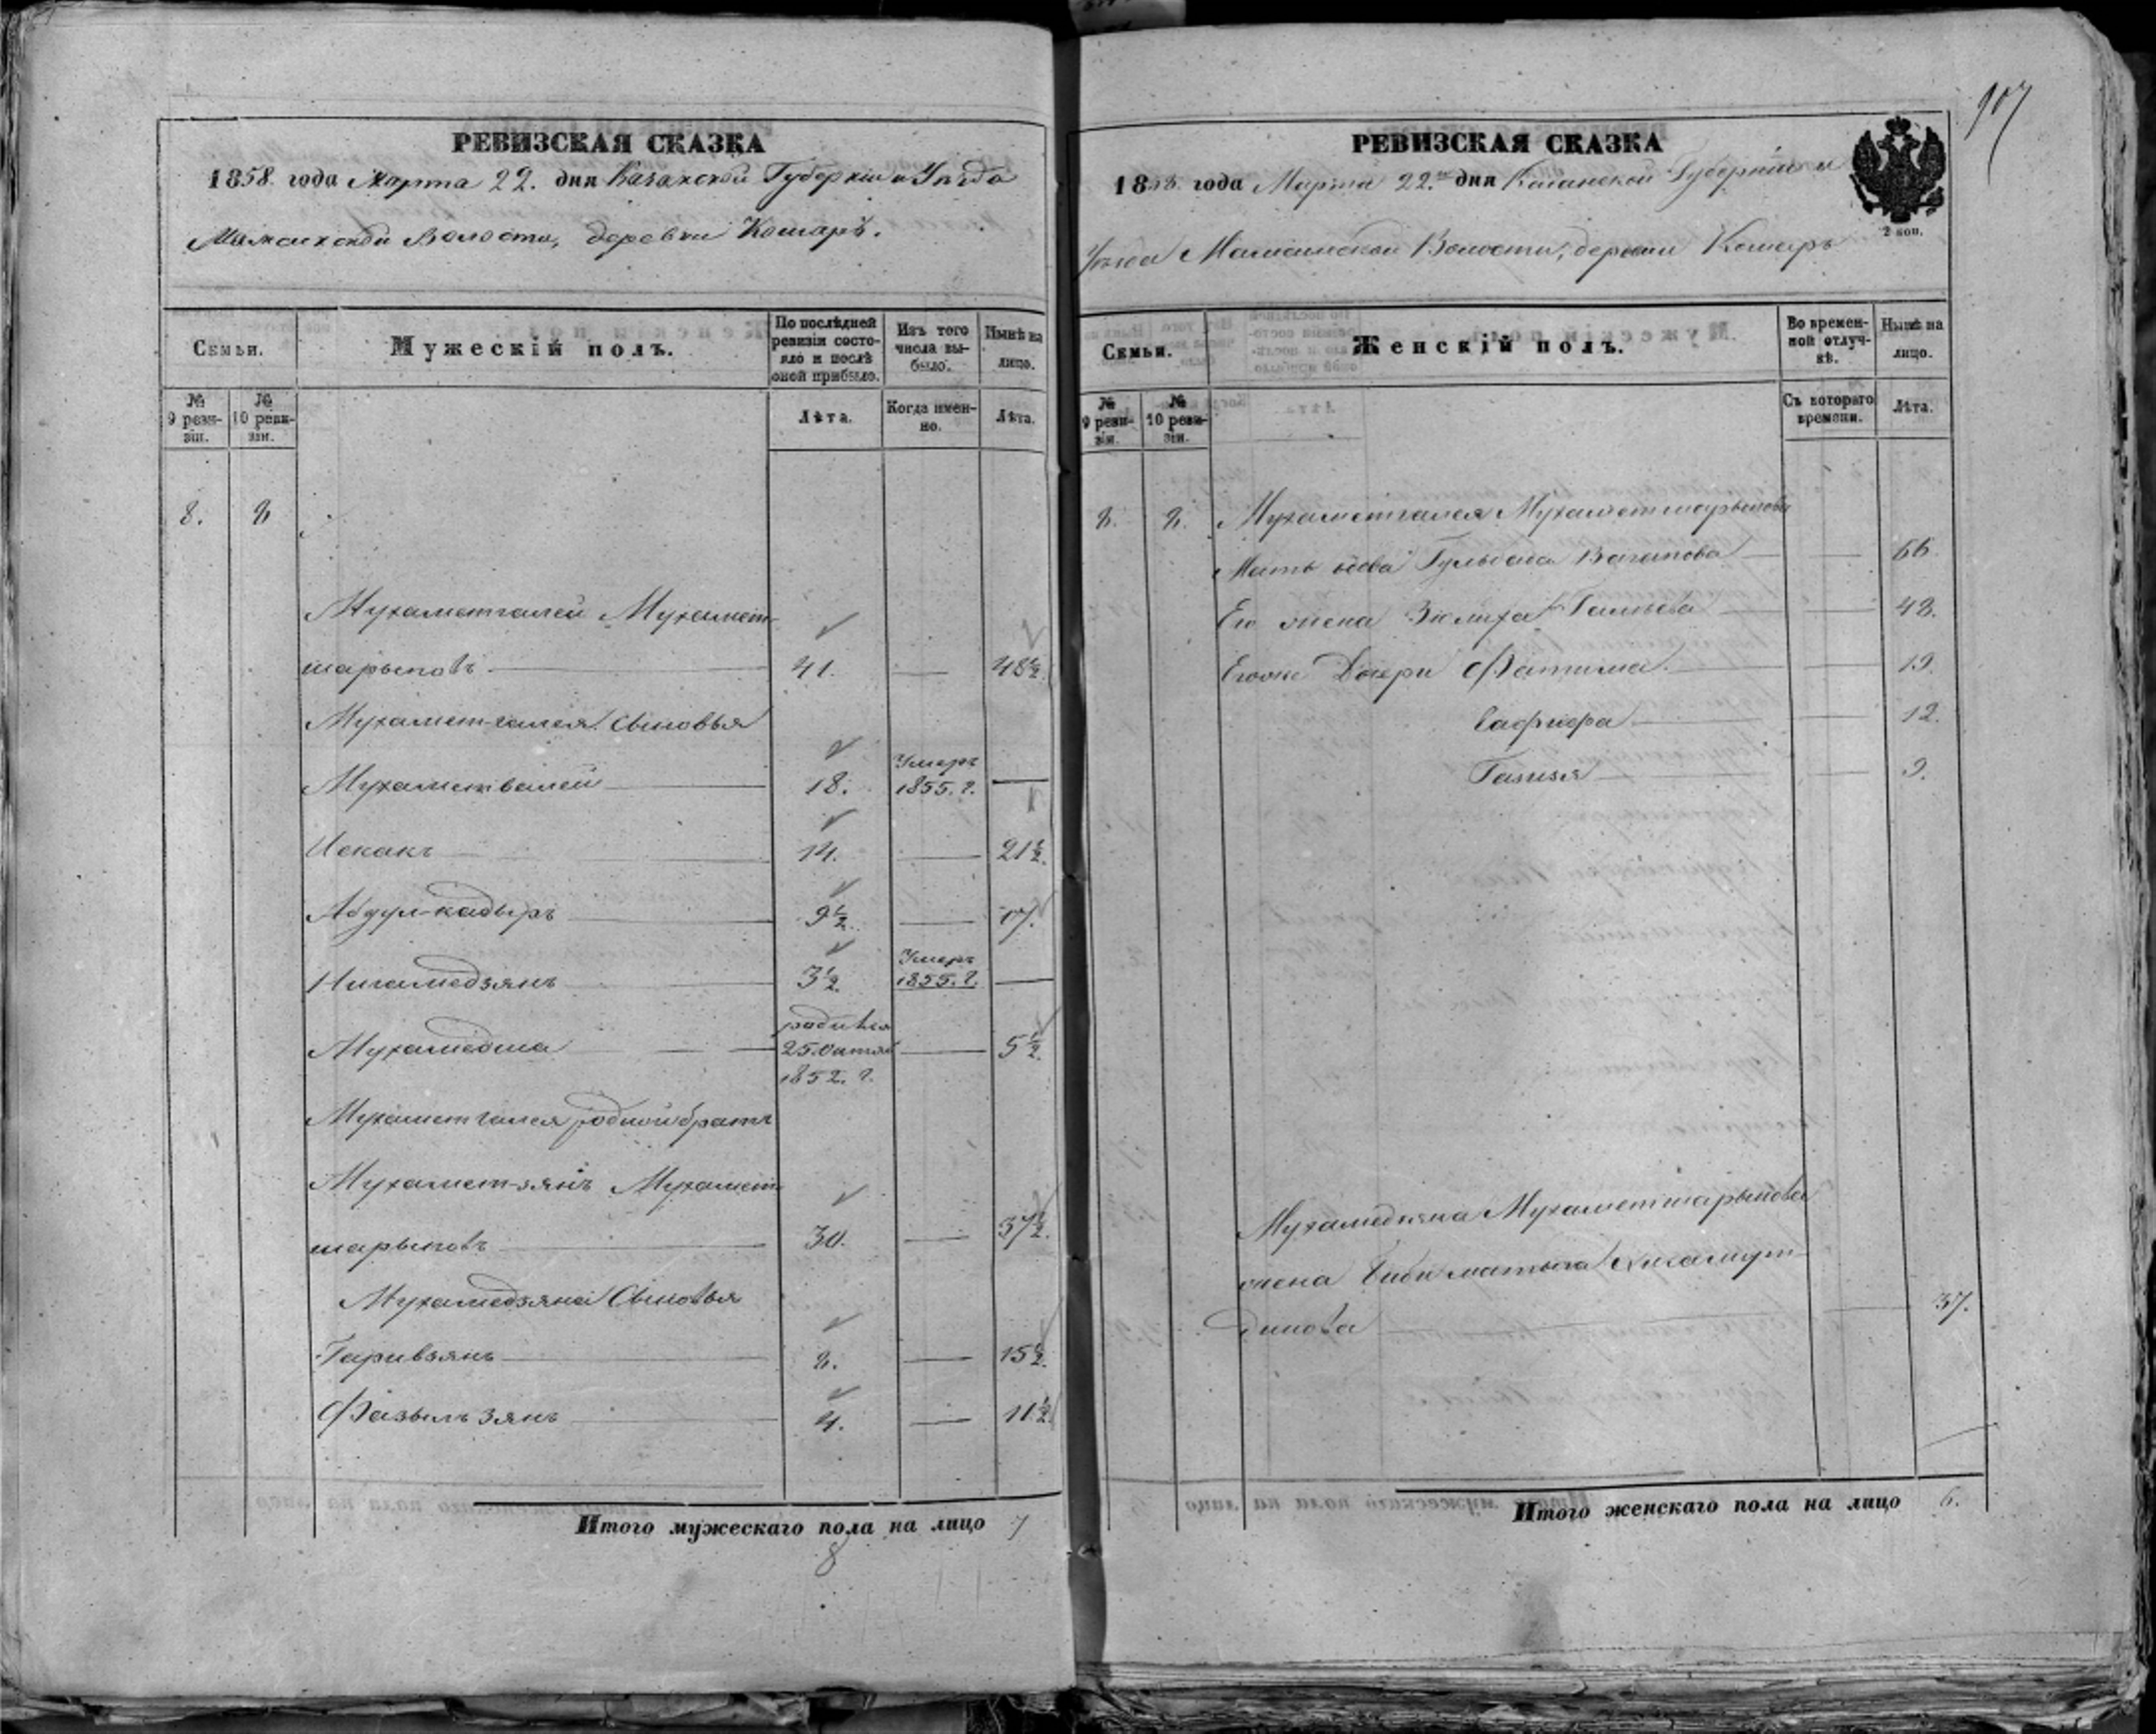 107
РЕВИЗСКАЯ СКАЗКА
1858 года Марта 22. дня Казанской Губерніи и Уѣзда
Мамсинской Волости, деревни Кошаръ.
Семьи.
Мужескій полъ.
По послѣдней ревизіи состояло и послѣ оной прибыло.
Изъ того числа выбыло.
Нынѣ на лицо.
№ 9 ревизіи.
№ 10 ревизіи.
Лѣта.
Когда именно.
Лѣта.
8. 8
Мухаметгалей Мухамет-
шарыповъ 41. 48½.
Мухамет-галея Сыновья
Мухаметвалей 18. Умеръ 1855. г.
Исхакъ 14. 21½.
Абдул-кадыръ 9½. 17.
Нигамедзянъ 3½. Умеръ 1855. г.
Мухамедша родился 25. Октяб 1852. г. 5½.
Мухаметгалея родной братъ
Мухамет-зянъ Мухамет-
шарыповъ 30. 37½.
Мухамедзяна Сыновья
Гарифзянъ 8. 15½.
Фазылъ зянъ 4. 11½.
Итого мужескаго пола на лицо 7
8
РЕВИЗСКАЯ СКАЗКА
1858. года Марта 22. дня Казанской Губерніи и
Уѣзда Мамсинской Волости, деревни Кошаръ
2 коп.
Семьи.
Женскій полъ.
Во временной отлучкѣ.
Нынѣ на лицо.
№ 9 ревизіи.
№ 10 ревизіи.
Съ котораго времени.
Лѣта.
8. 8. Мухаметгалея Мухаметшарыпова
Мать вдова Вагапова 66.
Его жена Зюлиха Галиева 48.
Его же Дочери Фатима 19.
12.
Газизя 9.
Мухамедзяна Мухаметшарыпова
жена
динова 37.
Итого женскаго пола на лицо 6.